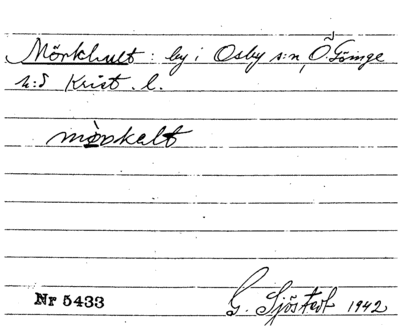 Mörkhult: by i Osby s:n, Ö. Göinge
h:d Krist. l.
mörkalt
Nr 5433
G. Sjöstedt 1942